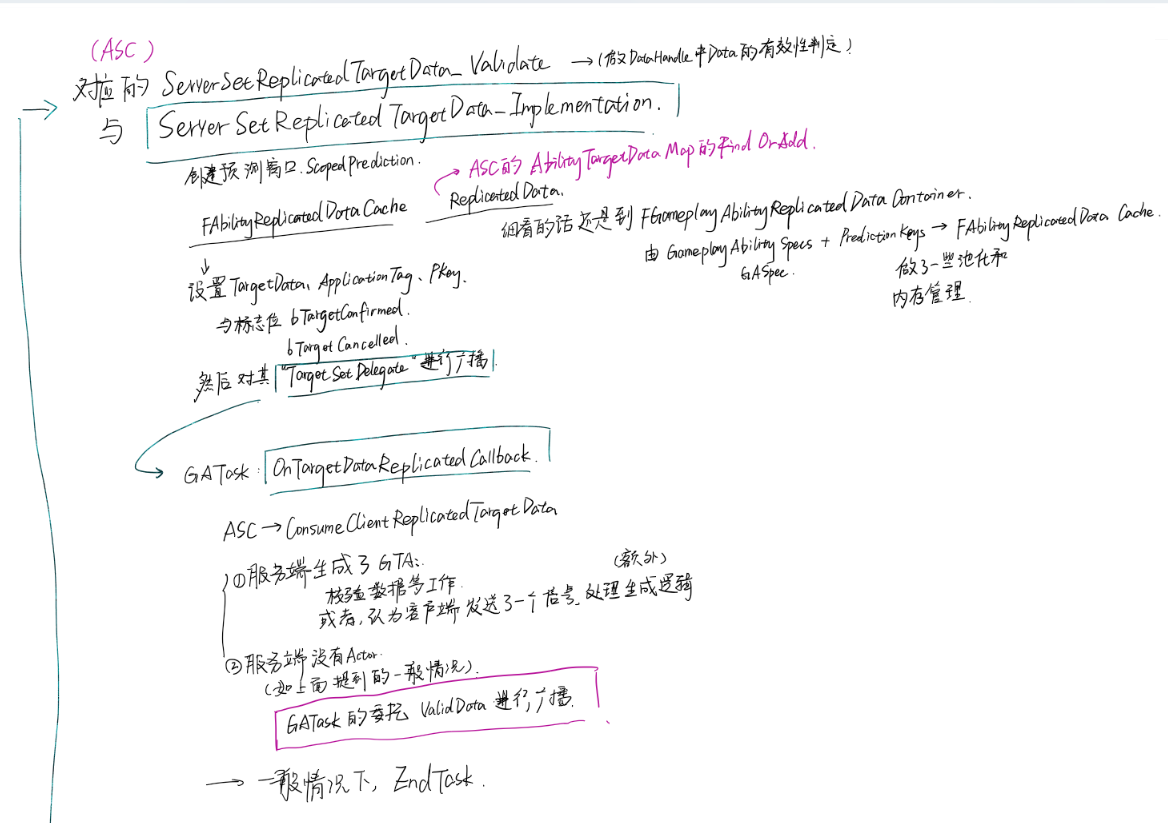 (ASC)
对应的 ServerSetReplicatedTargetData_Validate →(做DataHandle中Data的有效性判定)
与 ServerSetReplicatedTargetData_Implementation.
创建预测窗口.ScopedPrediction.
→ASC的AbilityTargetDataMap的Find OrAdd.
FAbilityReplicatedDataCache ReplicatedData.
细看的话还是到 FGameplayAbilityReplicatedDataContainer.
由 GameplayAbilitySpecs + PredictionKeys → FAbilityReplicatedData Cache.
GASpec.
做了一些池化和
内存管理.
↓
设置TargetData、ApplicationTag、PKey.
与标志位 bTargetConfirmed.
bTargetCancelled.
然后对其 "TargetSetDelegate" 进行广播.
GATask: OnTargetDataReplicatedCallback.
ASC→ConsumeClientReplicatedTargetData
①服务端生成了GTA:
校验数据等工作.
(额外)
或者,认为客户端发送了一个信号,处理生成逻辑
②服务端没有Actor.
(如上面提到的一般情况).
GATask的委托 ValidData 进行广播.
→ 一般情况下, EndTask.